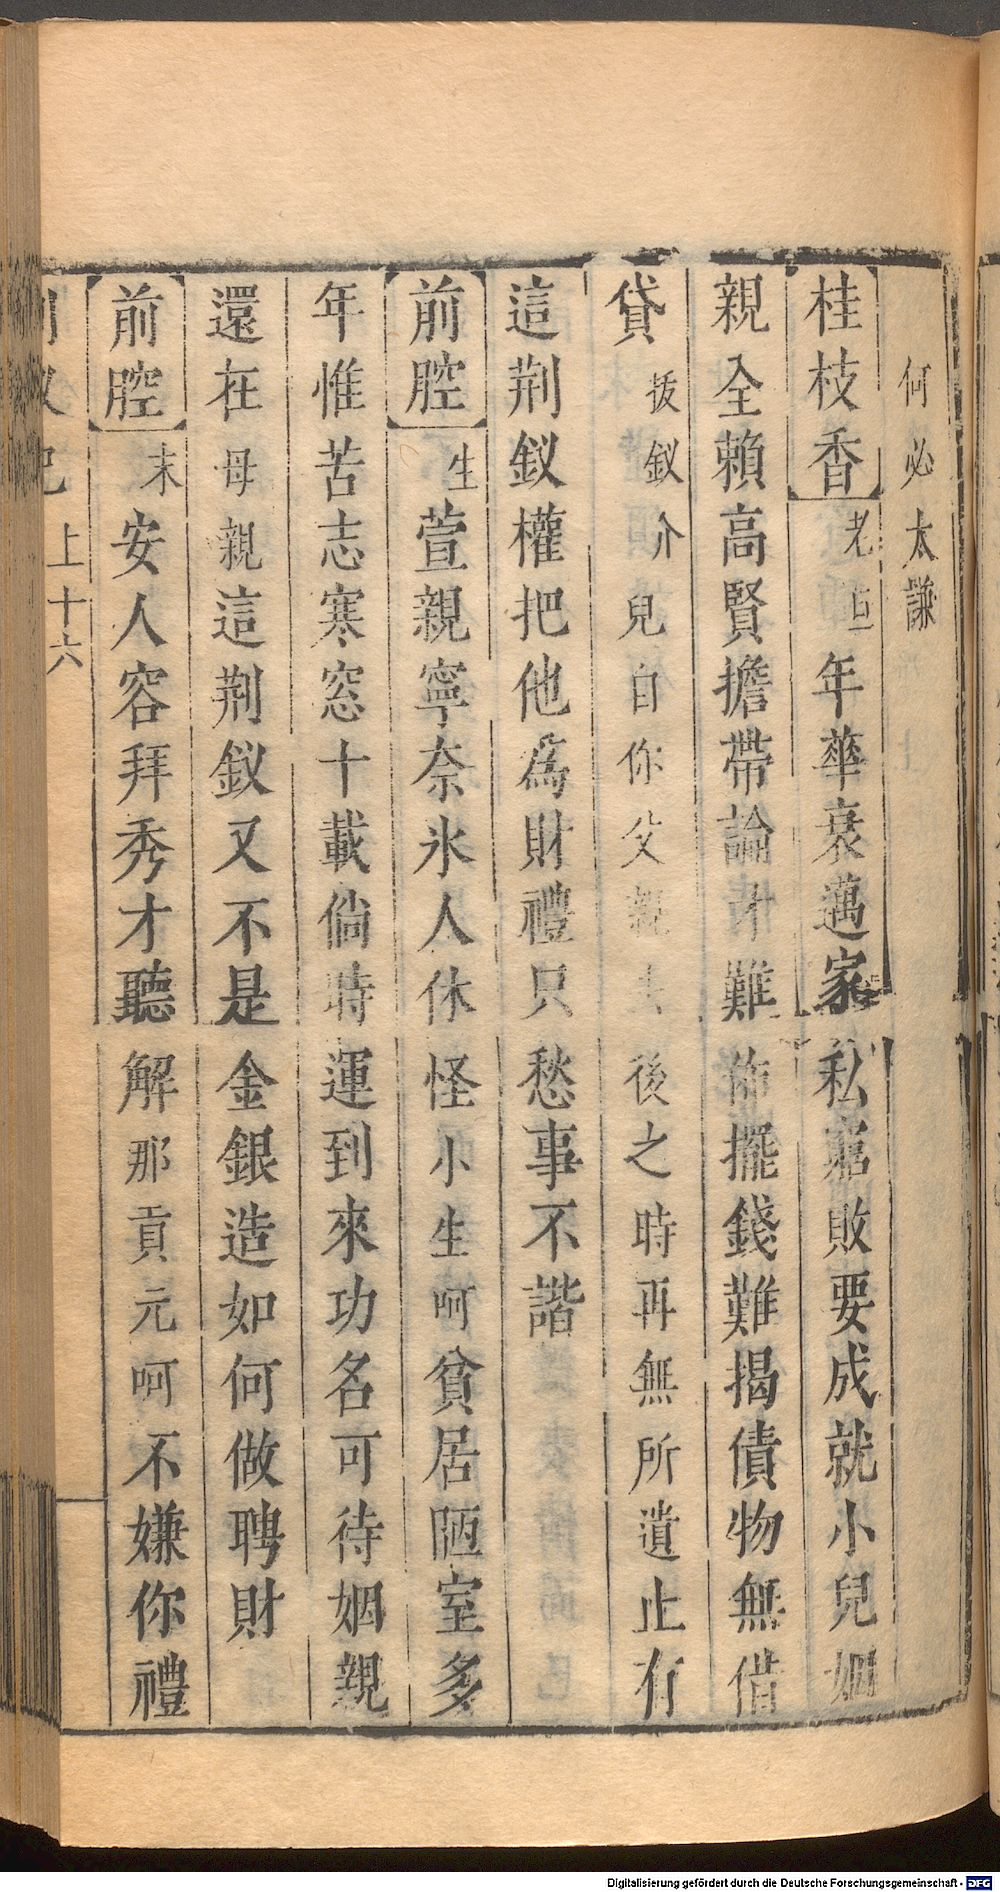 何必太謙
桂枝香 老旦年華衰邁家私窮敗要成就小兒姻
親全賴高賢擔帶論才難佈擺錢難揭債物無借
貸拔釵介兒自你父親去後之時再無所遺止有
這荆釵權把他為財禮只愁事不諧
前腔 生萱親寧奈氷人休怪小生呵貧居陋室多
年惟苦志寒窓十載倘時運到來功名可待姻親
還在母親這荆釵又不是金銀造如何做聘財
前腔 末安人容拜秀才聽解那貢元呵不嫌你禮
上十六
Digitalisierung gefördert durch die Deutsche Forschungsgemeinschaft - DFG